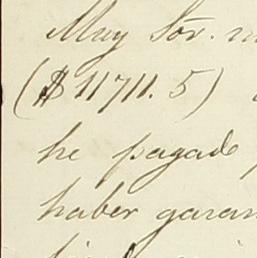 Muy Sor. m
($11711.5)
he pagado
haber garan